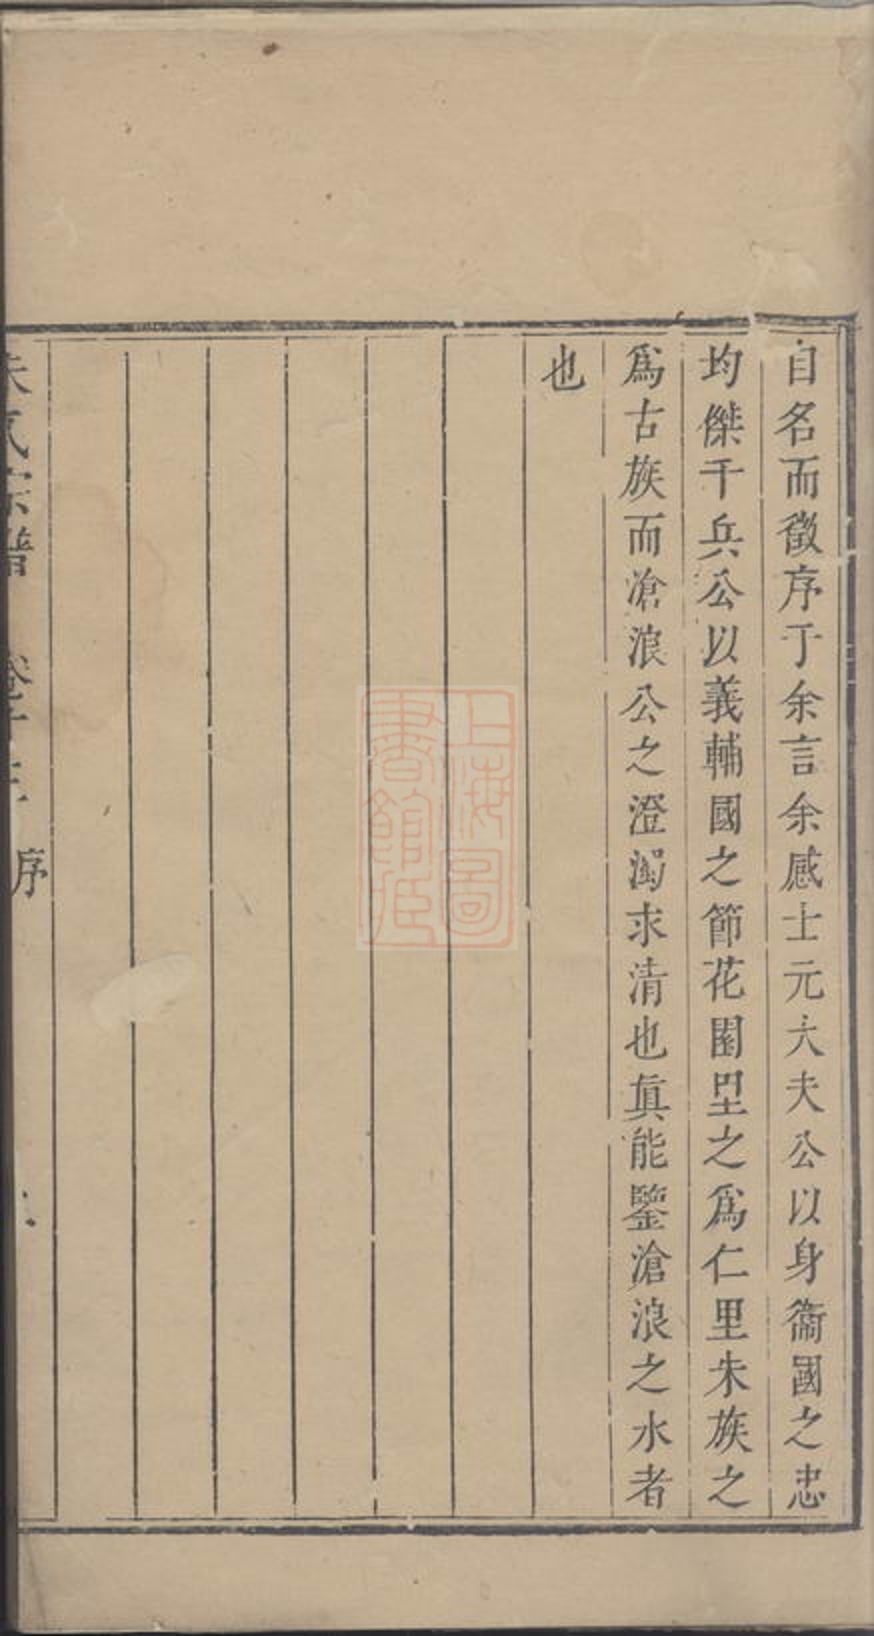 自名而徵序于余言余感士元大夫公以身衞國之忠
均傑千兵公以義輔國之節花園里之爲仁里朱族之
爲古族而滄浪公之澄濁求清也眞能鑒滄浪之水者
也
朱氏宗譜 卷十三 序
上海圖
書館藏